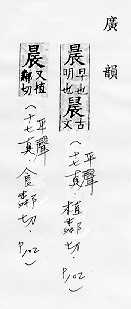 廣韻
晨 早也明也 晨 古文
(平聲十七真.植鄰切.P102)
晨 又植鄰切
(平聲十七真.食鄰切.P102)